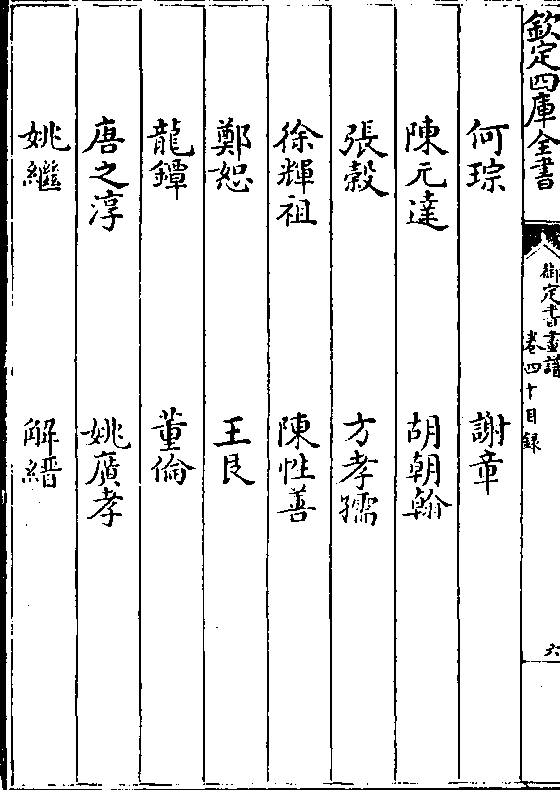 欽定四庫全書
御定書畫譜
卷四十目録
六
何琮　謝章
陳元達　胡朝翰
張縠　方孝孺
徐輝祖　陳性善
鄭恕　王艮
龍鐔　董倫
唐之淳　姚廣孝
姚繼　解縉